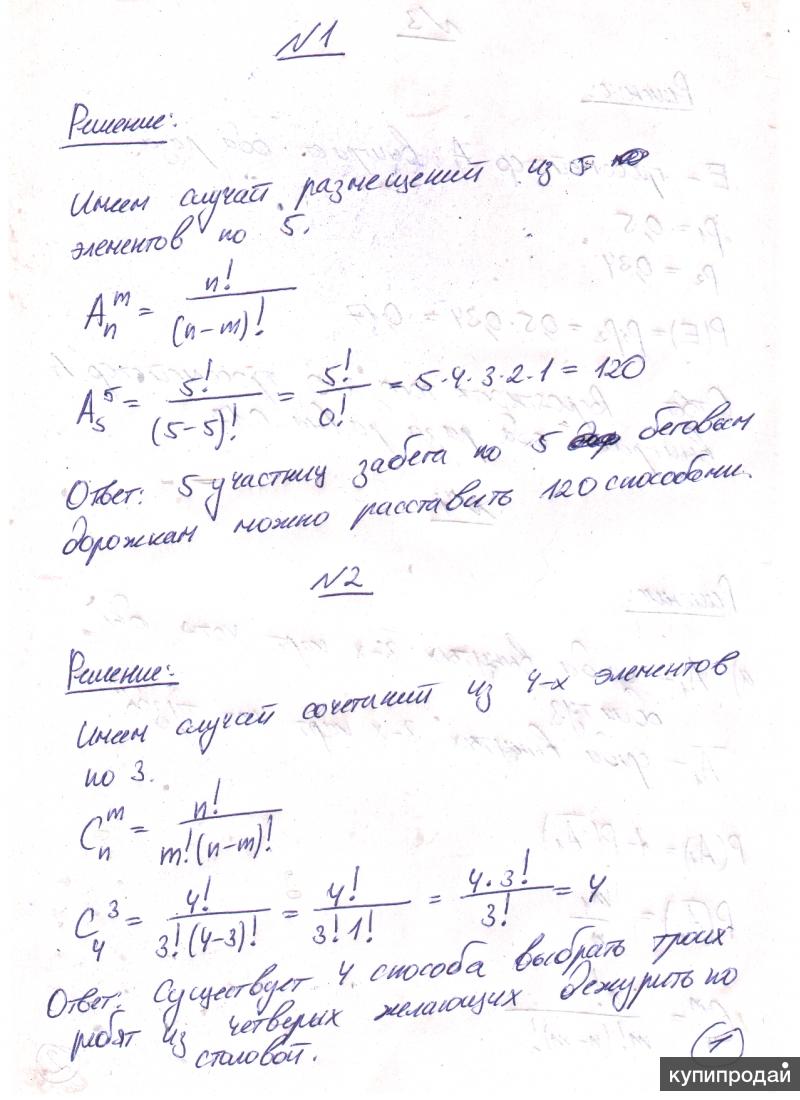 №1
Решение:
Имеем случай размещений из 5
элементов по 5.
A_n^m = n!/(n-m)!
A_5^5 = 5!/(5-5)! = 5!/0! = 5·4·3·2·1 = 120
Ответ: 5 участниц забега по 5 беговым
дорожкам можно расставить 120 способами.
№2
Решение:
Имеем случай сочетаний из 4-х элементов
по 3.
C_n^m = n!/m!(n-m)!
C_4^3 = 4!/3!(4-3)! = 4!/3!1! = 4·3!/3! = 4
Ответ: Существует 4 способа выбрать троих
ребят из четверых желающих дежурить по
столовой.
1
купипродай